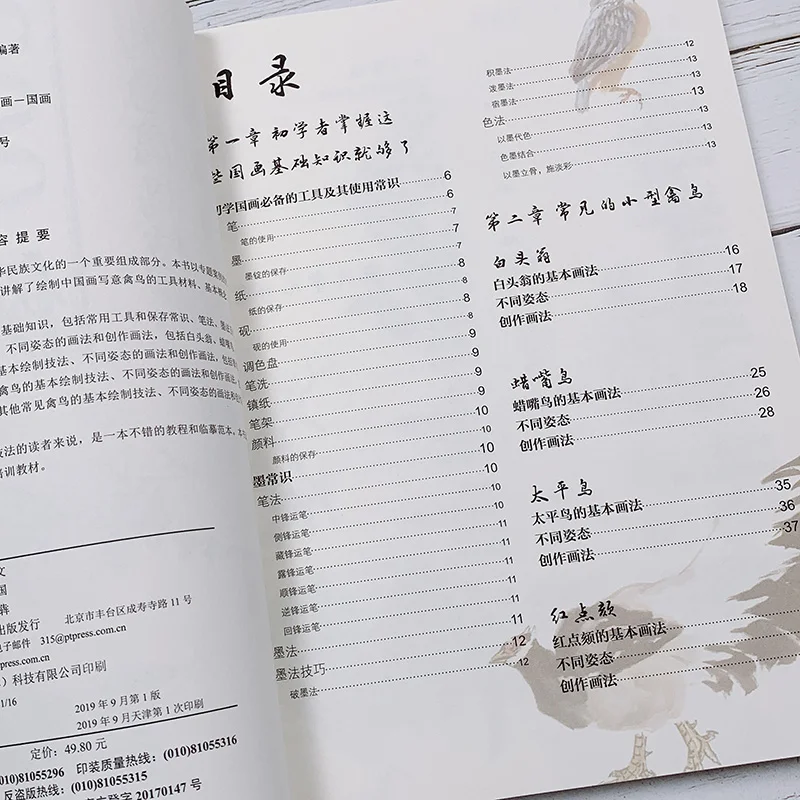 编著
画－国画
号
容提要
华民族文化的一个重要组成部分。本书以专题案例
讲解了绘制中国画写意禽鸟的工具材料、基本
基础知识，包括常用工具和保存常识、笔法、墨
、不同姿态的画法和创作画法，包括白头翁、蜡嘴
基本绘制技法、不同姿态的画法和创作画法，包括
禽鸟的基本绘制技法、不同姿态的画法和创作画法
其他常见禽鸟的基本绘制技法、不同姿态的画法和创
技法的读者来说，是一本不错的教程和临摹范本，本
培训教材。
文
国
犇
出版发行 北京市丰台区成寿寺路11号
电子邮件 315@ptpress.com.cn
ptpress.com.cn
）科技有限公司印刷
1/16
2019年9月第1版
2019年9月天津第1次印刷
定价：49.80元
(010)81055296 印装质量热线：(010)81055316
反盗版热线：(010)81055315
广登字20170147号
目录
第一章 初学者掌握这
些国画基础知识就够了
初学国画必备的工具及其使用常识 6
笔 6
笔的使用 7
墨 7
墨锭的保存 7
纸 8
纸的保存 8
砚 8
砚的使用 9
调色盘 9
笔洗 9
镇纸 9
笔架 10
颜料 10
颜料的保存 10
墨常识 10
笔法 10
中锋运笔 10
侧锋运笔 10
藏锋运笔 11
露锋运笔 11
顺锋运笔 11
逆锋运笔 11
回锋运笔 11
墨法 11
墨法技巧 12
破墨法 12
积墨法 12
泼墨法 13
宿墨法 13
色法 13
以墨代色 13
色墨结合 13
以墨立骨，施淡彩 13
第二章 常见的小型禽鸟
白头翁
白头翁的基本画法 16
不同姿态 17
创作画法 18
蜡嘴鸟
蜡嘴鸟的基本画法 25
不同姿态 26
创作画法 28
太平鸟
太平鸟的基本画法 35
不同姿态 36
创作画法 37
红点颏
红点颏的基本画法
不同姿态
创作画法